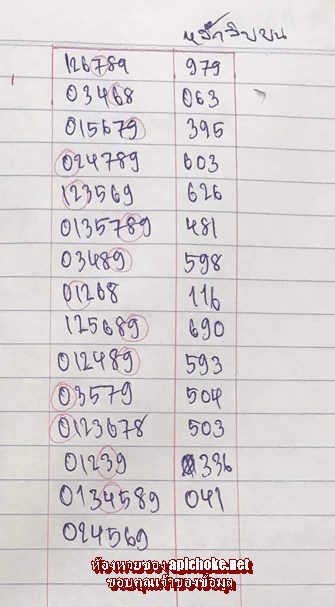 หลักสิบบน
126789 979
03468 063
015679 395
024789 603
123569 626
0135789 481
03489 598
01268 116
125689 690
012489 593
03579 504
0123678 503
01239 336
0134589 041
024569
ห้องหวยซอง apichoke.net
ขอบคุณเจ้าของข้อมูล